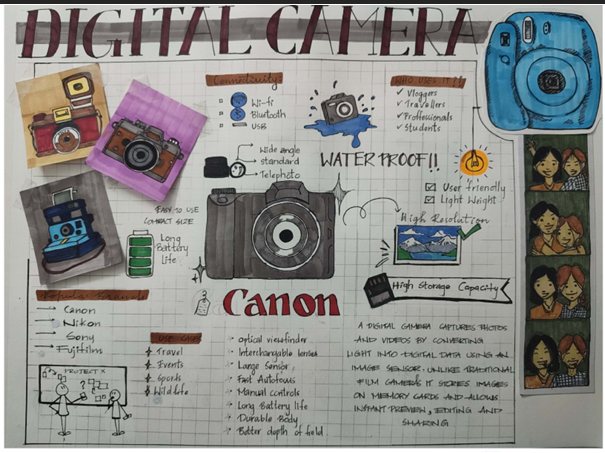 DIGITAL CAMERA
Connectivity
Wi-fi
Bluetooth
USB
WHO USES IT??
Vloggers
Travellers
Professionals
Students
WATERPROOF!!
Wide angle
standard
Telephoto
User friendly
Light Weight
EASY TO USE
COMPACT SIZE
Long
Battery
Life
High Resolution
High Storage Capacity
Canon
Popular
Canon
Nikon
Sony
Fujifilm
USE CASES
Travel
Events
Sports
Wildlife
optical viewfinder
Interchangable lenses
Large Sensor
Fast Autofocus
Manual controls
Long Battery life
Durable Body
Better depth of field
PROJECT X
A DIGITAL CAMERA CAPTURES PHOTOS
AND VIDEOS BY CONVERTING
LIGHT INTO DIGITAL DATA USING AN
IMAGE SENSOR. UNLIKE TRADITIONAL
FILM CAMERAS IT STORES IMAGES
ON MEMORY CARDS AND ALLOWS
INSTANT PREVIEW, EDITING AND
SHARING